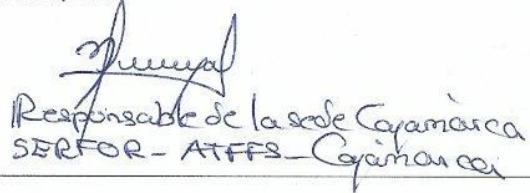 Responsable de la sede Cajamarca
SERFOR - ATFFS - Cajamarca